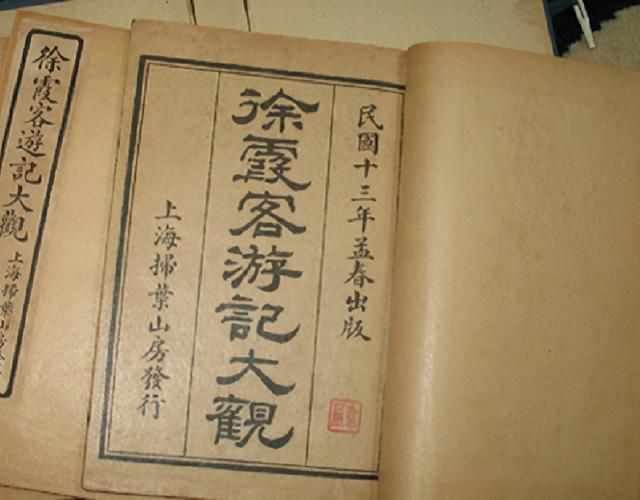 民國十三年孟春出版
徐霞客游記大觀
上海掃葉山房發行
徐霞客遊記大觀
上海掃葉山房